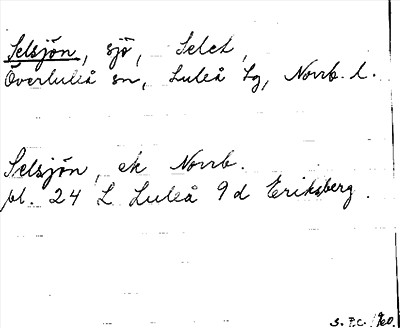 Selsjön, sjö, Selet,
Överluleå sn, Luleå tg, Norrb. l.
Selsjön, ek Norrb.
bl. 24 L Luleå 9d Eriksberg.
S. P.C. 1960.